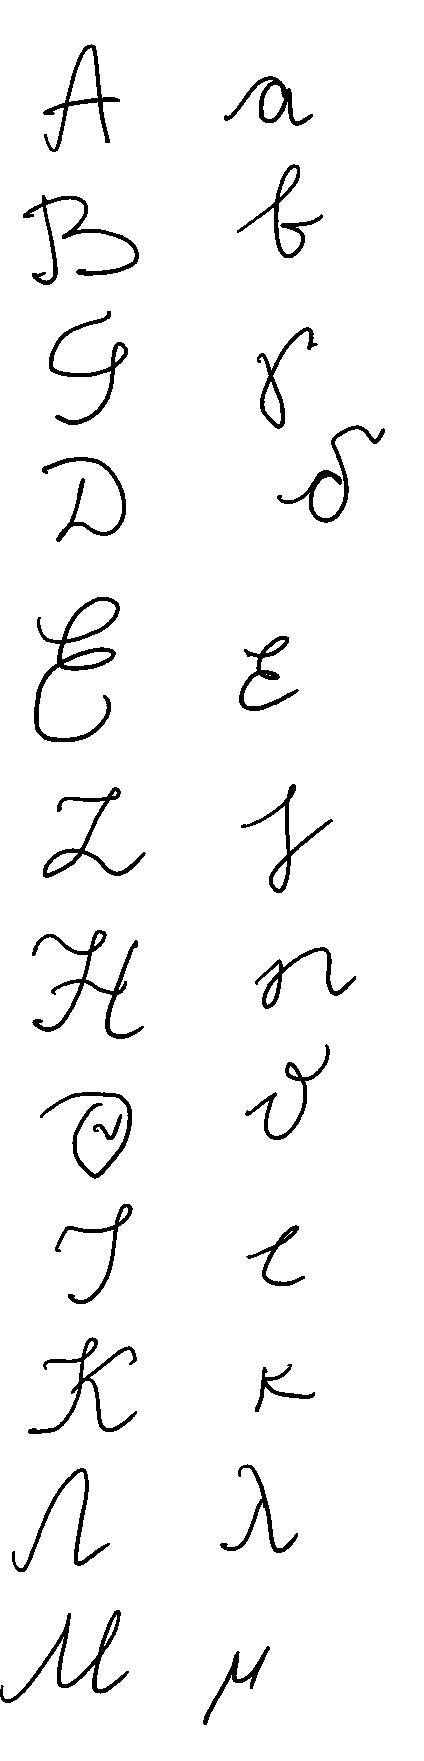 Α α
Β β
Γ γ
Δ δ
Ε ε
Ζ ζ
Η η
Θ ϑ
Ι ι
Κ κ
Λ λ
Μ μ